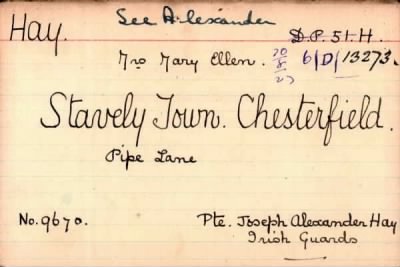 See Alexander
Hay. D.P. 51. H.
Mrs Mary Ellen. 20/8/27 6/D/13273.
Stavely Town. Chesterfield.
Pipe Lane
No. 9670. Pte. Joseph Alexander Hay
Irish Guards